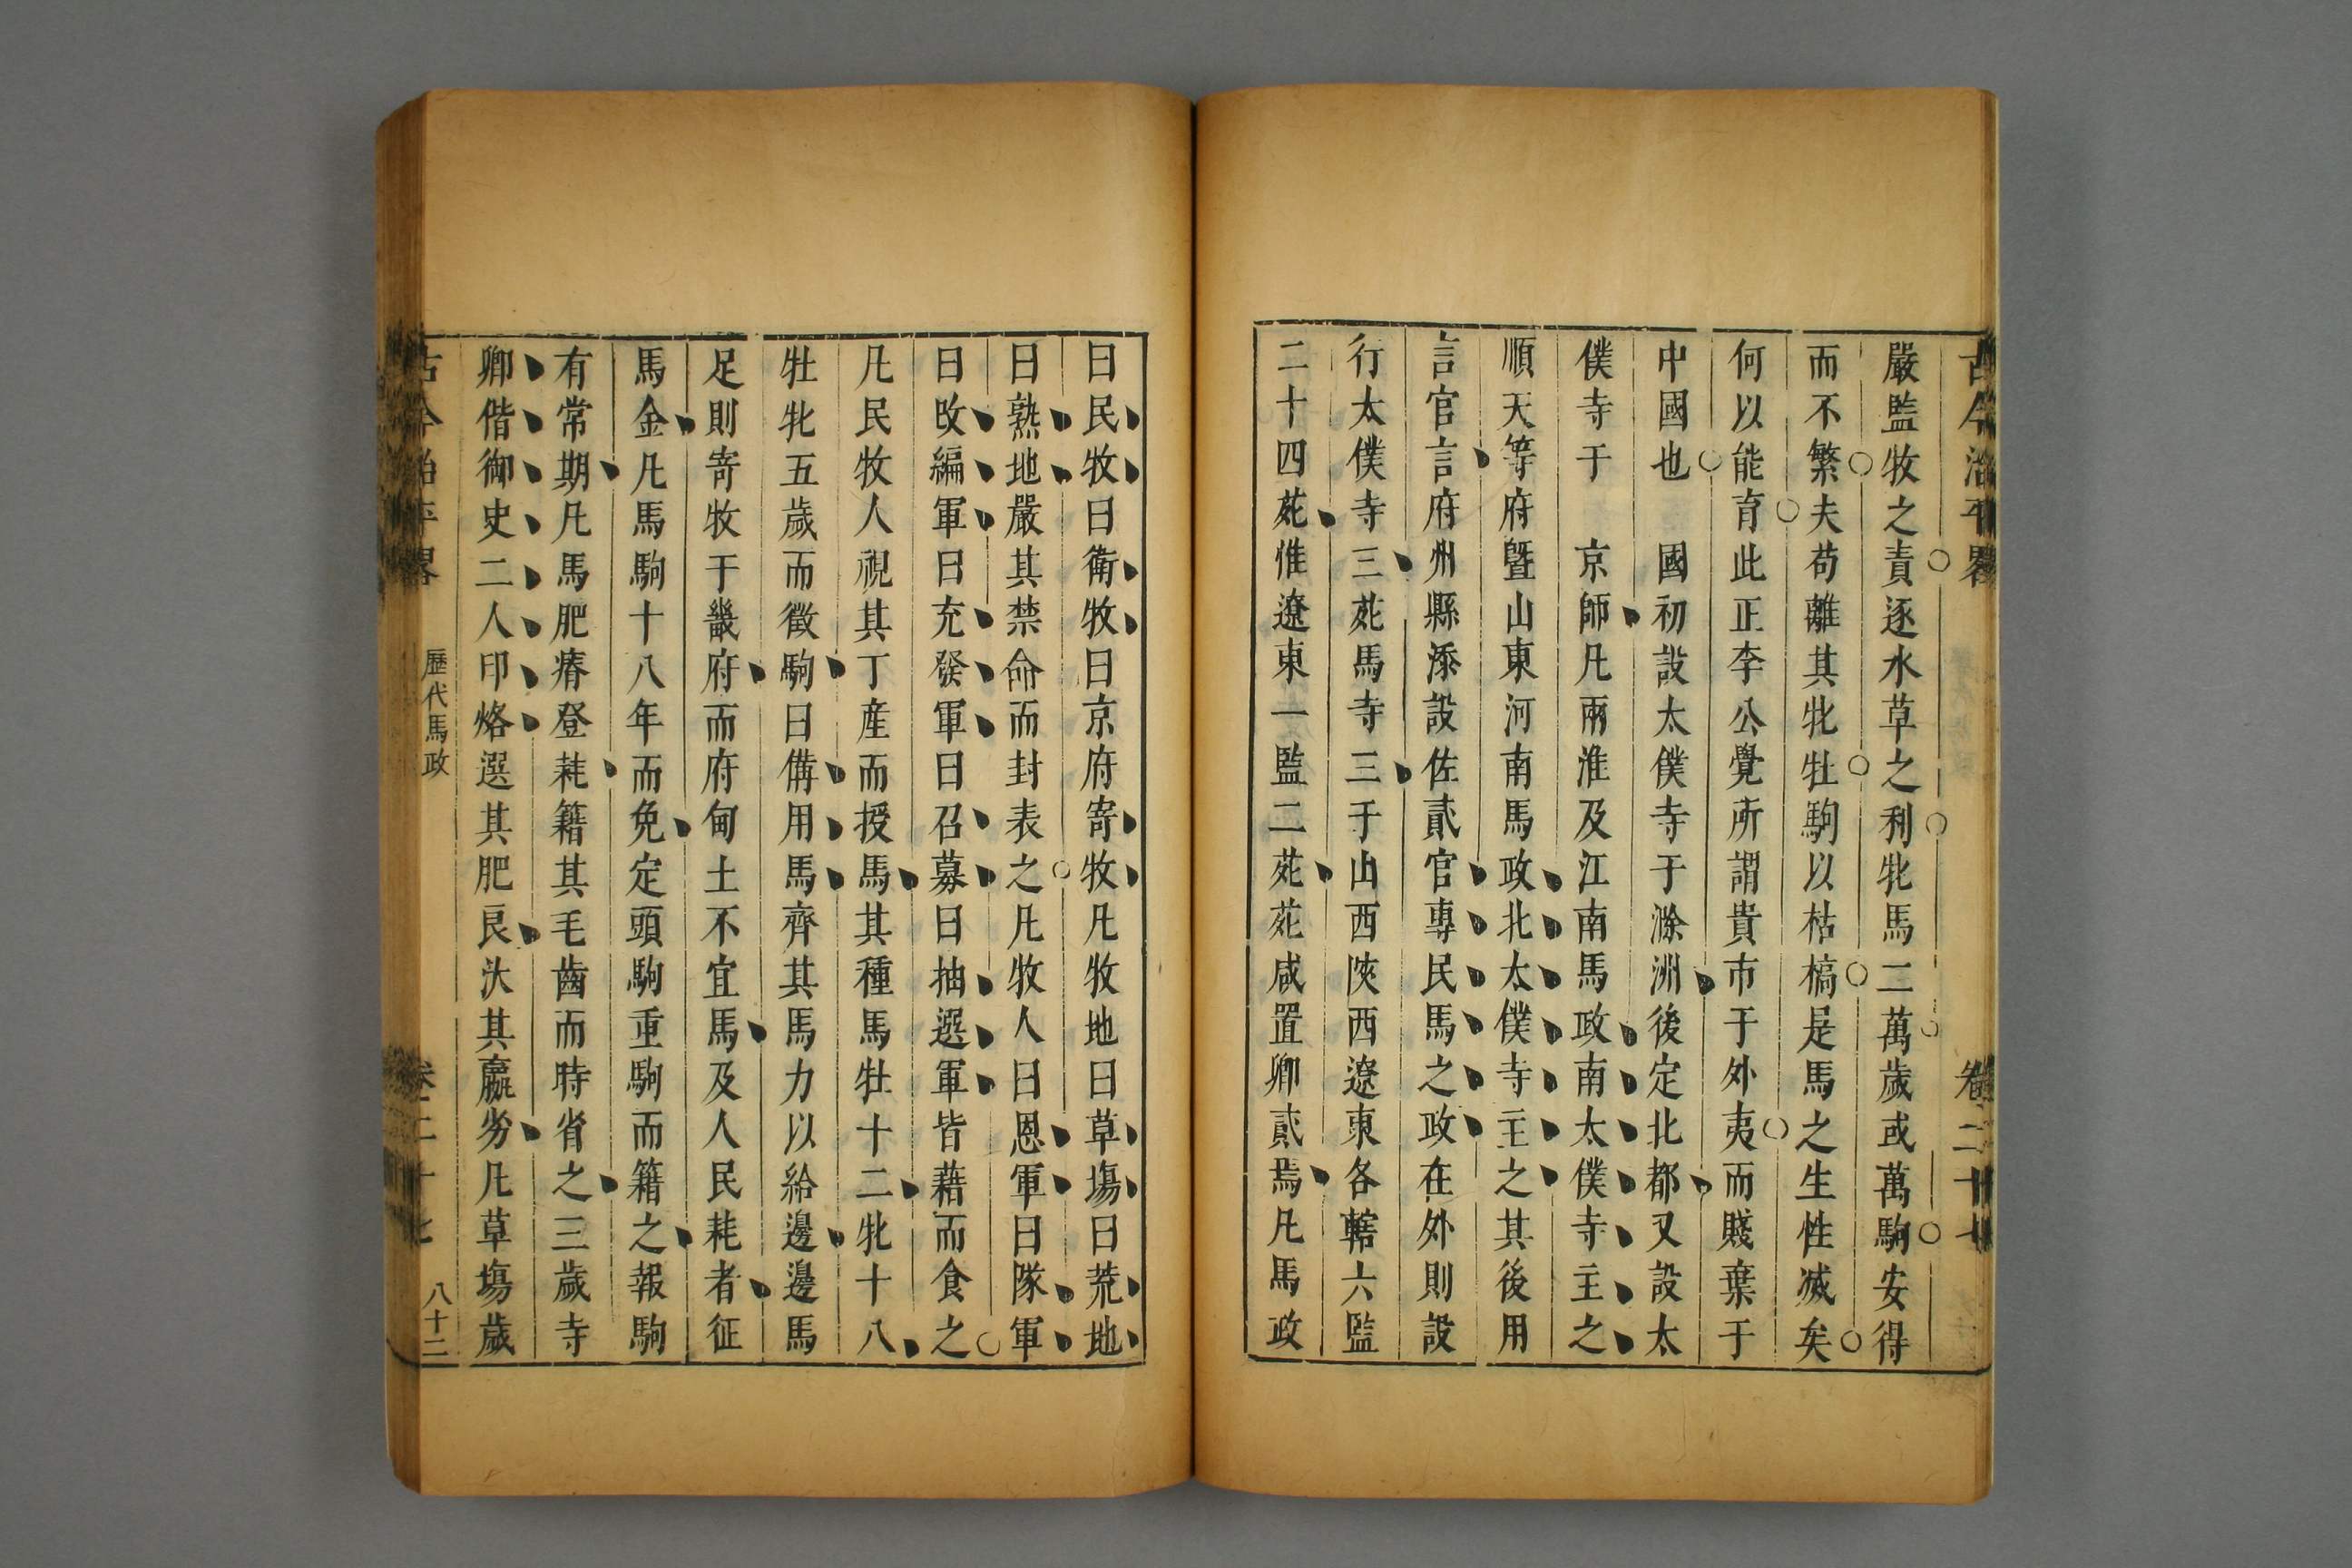 古今治平畧 卷二十七
嚴監牧之責逐水草之利牝馬二萬歲或萬駒安得
而不繁夫苟離其牝牡駒以枯槁是馬之生性滅矣
何以能育此正李公覺所謂貴市于外夷而賤棄于
中國也 國初設太僕寺于滁洲後定北都又設太
僕寺于 京師凡兩淮及江南馬政南太僕寺主之
順天等府曁山東河南馬政北太僕寺主之其後用
言官言府州縣添設佐貳官專民馬之政在外則設
行太僕寺三苑馬寺三于山西陝西遼東各轄六監
二十四苑惟遼東一監二苑苑咸置卿貳焉凡馬政
曰民牧曰衛牧曰京府寄牧凡牧地曰草塲曰荒地
曰熟地嚴其禁命而封表之凡牧人曰恩軍曰隊軍
曰改編軍曰充發軍曰召募曰抽選軍皆藉而食之
凡民牧人視其丁產而授馬其種馬牡十二牝十八
牡牝五歲而徵駒曰備用馬齊其馬力以給邊邊馬
足則寄牧于畿府而府甸土不宜馬及人民耗者征
馬金凡馬駒十八年而免定頭駒重駒而籍之報駒
有常期凡馬肥瘠登耗籍其毛齒而時省之三歲寺
卿偕御史二人印烙選其肥良汰其羸劣凡草塲歲
古今治平畧 歷代馬政 卷二十七 八十二